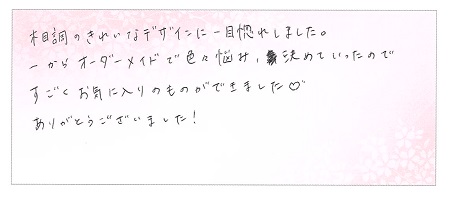 和調のきれいなデザインに一目惚れしました。
一からオーダーメイドで色々悩み、決めていったので
すごくお気に入りのものができました♡
ありがとうございました！